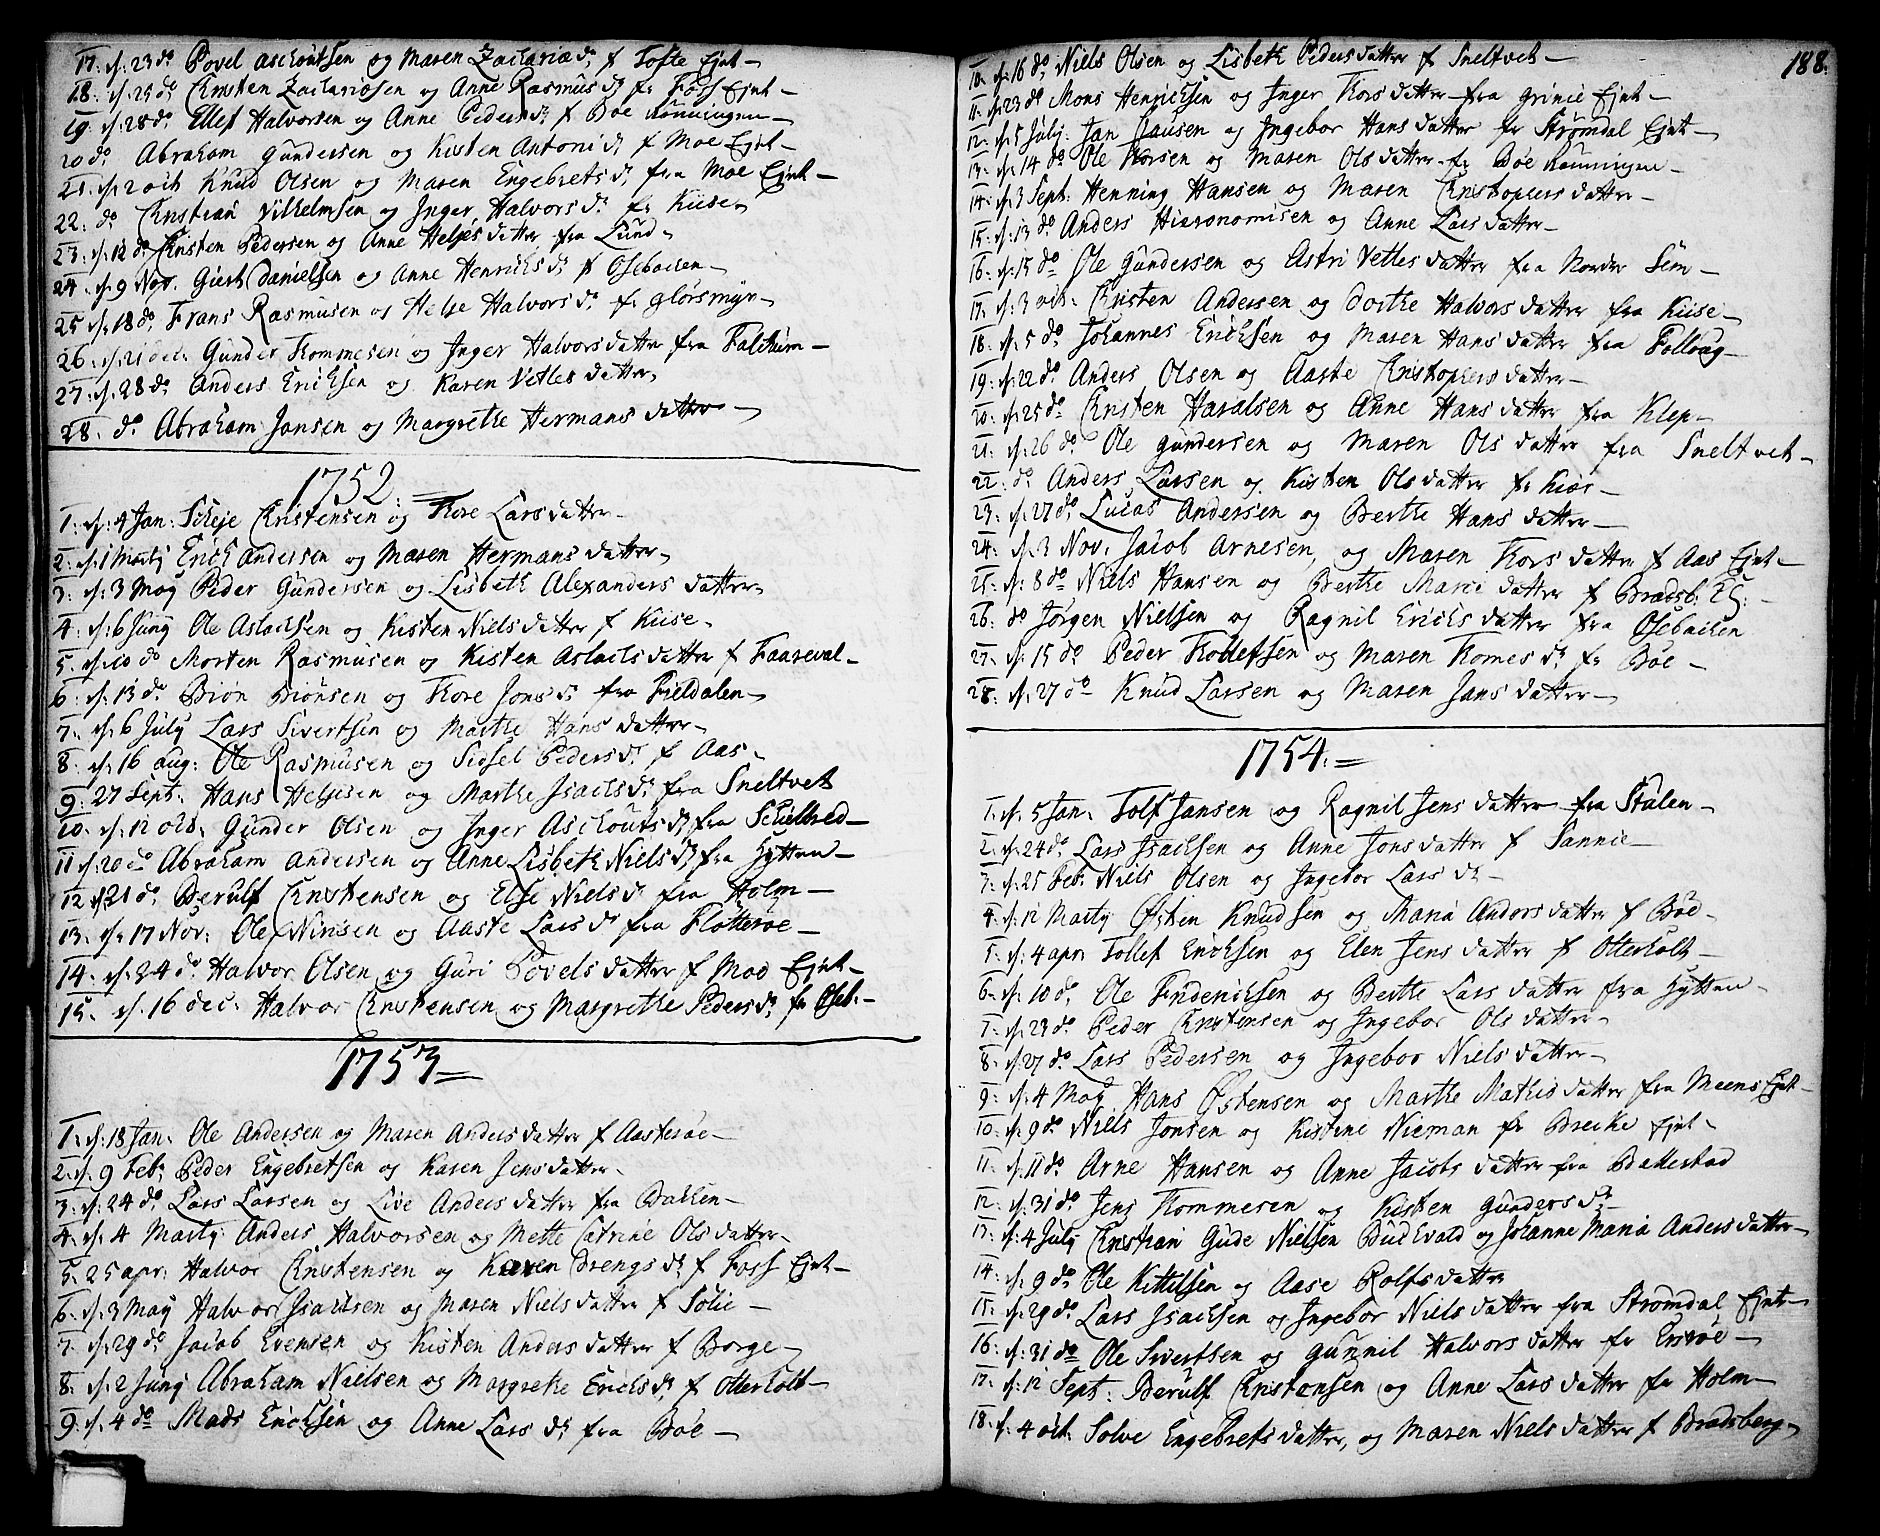 17. d: 23 do Povel Aschoutsen og Maren Zacharia d: f Tofte Ejet
18. d: 25 do Christen Zachariesen og Anne Rasmus d: fr Foss Ejet
19. d: 28 do Ellef Halvorsen og Anne Peders d: f Böe Rönningen
20 do Abraham Gundersen og Kisten Antoni d: f Moe Ejet
21. d: 2 oct Knud Olsen og Maren Engebrets d: fra Moe Ejet
22. do Christian Vilhelmsen og Inger Halvors d: fr Kiise
23. d: 12 do Christen Pedersen og Anne Heljes datter fra Lund
24. d: 9 Nov. Giert Danielsen og Anne Henrichs d: f Osebacken
25 d: 18 do Frans Rasmusen og Helje Halvors d: fr Glörsmyr
26. d: 21 dec: Gunder Tommesen og Inger Halvorsdatter fra Falchum
27. d: 28 do Anders Erichsen og Karen Vetles datter
28. do Abraham Jansen og Margrethe Hermans datter
1752.
1. d: 4 Jan: Scheje Christensen og Tore Lars datter
2. d: 1 Marty Erich Andersen og Maren Hermans datter
3. d: 3 May Peder Gundersen og Lisbeth Alexanders datter
4. d: 6 Juny Ole Aslachsen og Kisten Niels datter f Kiise
5. d: 10 do Morten Rasmusen og Kisten Aslachs datter f Faareval
6. d: 13 do Biön Biönsen og Tore Jons d: fra Fieldalen
7. d: 6 July Lars Sivertsen og Marthe Hans datter
8. d: 16 aug: Ole Rasmusen og Sidsel Peders d: f Aas
9. 27 Sept: Hans Heljesen og Marthe Isachs d: fra Sneltvet
10. d: 12 oct. Gunder Olsen og Inger Aschouts d: fra Schielbred
11 d: 20 do Abraham Andersen og Anne Lisbeth Niels d: fra Hytten
12 d: 21 do Berulf Christensen og Else Niels d: fra Holm
13. d: 17 Nov: Ole Nirisen og Aaste Lars d: fra Flötteröe
14. d: 24 do Halvor Olsen og Guri Povels datter f Moe Ejet
15. d: 16 dec: Halvor Christensen og Margrethe Peders d: fr Oseb:
1753
1. d: 18 Jan: Ole Andersen og Maren Anders datter f Aasteröe
2. d. 9 Feb: Peder Engebretsen og Karen Jens datter
3. d: 24 do Lars Larsen og Live Anders datter fra Backen
4. d: 4 Marty Anders Halvorsen og Mette Catrine Ols datter
5. 25 apr: Halvor Christensen og Karen Drengs d: f Foss Ejet
6. d: 3 May Halvor Isachsen og Maren Niels datter f Solie
7. d: 29 do Jacob Evensen og Kisten Anders datter f Borge
8. d: 2 Juny Abraham Nielsen og Margrethe Erichs d: f Otterholt
9. d: 4 do Mads Erichsen og Anne Lars d: fra Böe
188.
10. d: 16 do Niels Olsen og Lisbeth Peders datter f Sneltvet
11. d: 23 do Mons Henrichsen og Inger Tors datter fra Grinie Ejet
12. d: 5 July: Jan Clausen og Ingebor Hans datter fr Strömdal Ejet
13. d: 14 do Ole Torsen og Maren Ols datter fr Böe Rönningen
14. d: 3 Sept: Henning Hansen og Maren Christophers datter
15. d: 13 do Anders Hieronomisen og Anne Lars datter
16. d: 15 do Ole Gundersen og Astri Vetles datter fra Norder Sem
17. d: 3 oct: Christen Andersen og Dorthe Halvors datter fra Kiise
18. d: 5 do Johannes Erichsen og Maren Hans datter fra Follaug
19. d: 22 do Anders Olsen og Aaste Christophers datter
20. d: 25 do Christen Haralsen og Anne Hans datter fra Klep
21. d: 26 do Ole Gundersen og Maren Ols datter fra Sneltvet
22. do Anders Larsen og Kisten Ols datter fr Kiör
23. d: 27 do Lucas Andersen og Berthe Hans datter
24. d: 2 Nov. Jacob Arnesen, og Maren Tors datter f Aas Ejet
25. d: 8 do Niels Hansen og Berthe Marie datter f Bradsb: Ej:
26. do Jörgen Nielsen og Ragnil Erichs datter fra Osebacken
27. d: 15 do Peder Tollefsen og Maren Tomes d: fr Böe
28. d: 27 do Knud Larsen og Maren Jans datter
1754.
1. d: 5 Jan: Tolf Jansen og Ragnil Jens datter fra Stulen
2. d: 24 do Lars Isachsen og Anne Jons datter f Sannie
3. d: 25 Feb: Niels Olsen og Ingebor Lars d:
4. d: 12 Marty Østen Knudsen og Maria Anders datter f Böe
5. d: 4 apr: Tollef Erichsen og Elen Jens datter f Otterholt
6. d: 10 do Ole Friderichsen og Berthe Lars datter fra Hytten
7. d: 23 do Peder Christensen og Ingebor Ols datter
8. d: 27 do Lars Pedersen og Ingebor Niels datter
9. d: 4 May Hans Østensen og Marthe Mathis datter fra Meens Ejet
10. d: 9 do Niels Jonsen og Kistine Nieman fr Breche Ejet
11. d: 11 do Arne Hansen og Anne Jacobs datter fra Ballestad
12. d: 31 do Jens Tommesen og Kisten Gunders d:
13. d: 4 July Christian Gude Nielsen Buchvald og Johanne Maria Anders datter
14. d: 9 do Ole Kittilsen og Aase Rolfs datter
15. d: 29 do Lars Isachsen og Ingebor Niels datter fra Strömdal Ejet
16. d: 31 do Ole Sivertsen og Gunnil Halvors datter fr Ersröe
17. d: 12 Sept: Berulf Christensen og Anne Lars datter fr Holm
18. d: 4 oct: Solve Engebrets datter, og Maren Niels datter f Bradsberg